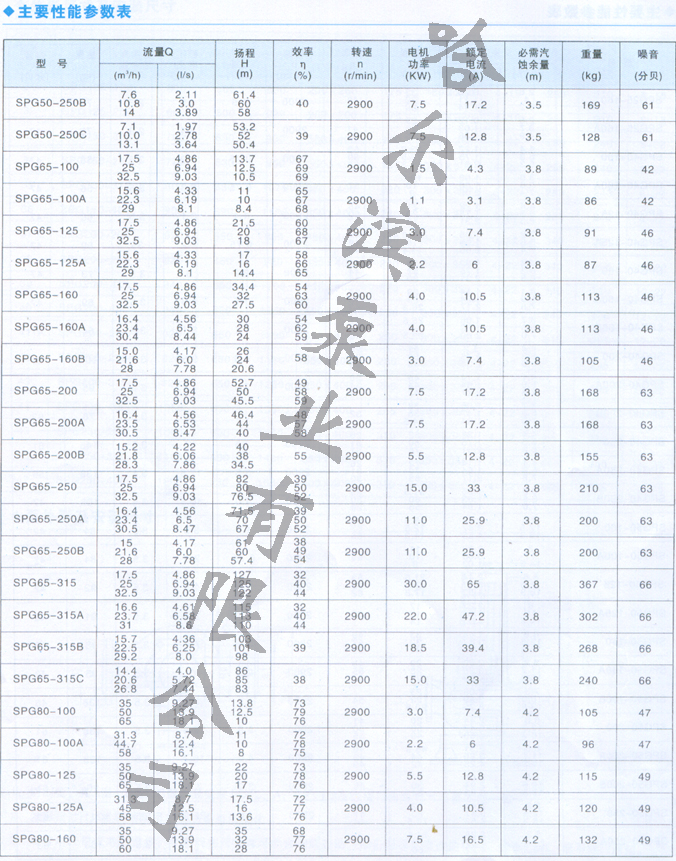 ◆主要性能参数表
型 号 流量Q (m³/h) (l/s) 扬程 H (m) 效率 η (%) 转速 n (r/min) 电机 功率 (KW) 额定 电流 (A) 必需汽 蚀余量 (m) 重量 (kg) 噪音 (分贝)
SPG50-250B 7.6 10.8 14 2.11 3.0 3.89 61.4 60 58 40 2900 7.5 17.2 3.5 169 61
SPG50-250C 7.1 10.0 13.1 1.97 2.78 3.64 53.2 52 50.4 39 2900 7.5 12.8 3.5 128 61
SPG65-100 17.5 25 32.5 4.86 6.94 9.03 13.7 12.5 10.5 67 69 69 2900 1.5 4.3 3.8 89 42
SPG65-100A 15.6 22.3 29 4.33 6.19 8.1 11 10 8.4 65 67 68 2900 1.1 3.1 3.8 86 42
SPG65-125 17.5 25 32.5 4.86 6.94 9.03 21.5 20 18 60 68 67 2900 3.0 7.4 3.8 91 46
SPG65-125A 15.6 22.3 29 4.33 6.19 8.1 17 16 14.4 58 66 65 2900 2.2 6 3.8 87 46
SPG65-160 17.5 25 32.5 4.86 6.94 9.03 34.4 32 27.5 54 63 60 2900 4.0 10.5 3.8 113 46
SPG65-160A 16.4 23.4 30.4 4.56 6.5 8.44 30 28 24 54 62 59 2900 4.0 10.5 3.8 113 46
SPG65-160B 15.0 21.6 28 4.17 6.0 7.78 26 24 20.6 58 2900 3.0 7.4 3.8 105 46
SPG65-200 17.5 25 32.5 4.86 6.94 9.03 52.7 50 45.5 49 58 59 2900 7.5 17.2 3.8 168 63
SPG65-200A 16.4 23.5 30.5 4.56 6.53 8.47 46.4 44 40 48 57 58 2900 7.5 17.2 3.8 168 63
SPG65-200B 15.2 21.8 28.3 4.22 6.06 7.86 40 38 34.5 55 2900 5.5 12.8 3.8 155 63
SPG65-250 17.5 25 32.5 4.86 6.94 9.03 82 80 76.5 39 50 52 2900 15.0 33 3.8 210 63
SPG65-250A 16.4 23.4 30.5 4.56 6.5 8.47 71.5 70 67 39 50 52 2900 11.0 25.9 3.8 200 63
SPG65-250B 15 21.6 28 4.17 6.0 7.78 61 60 57.4 38 49 54 2900 11.0 25.9 3.8 200 63
SPG65-315 17.5 25 32.5 4.86 6.94 9.03 127 125 122 32 40 44 2900 30.0 65 3.8 367 66
SPG65-315A 16.6 23.7 31 4.61 6.58 8.6 115 113 110 32 40 44 2900 22.0 47.2 3.8 302 66
SPG65-315B 15.7 22.5 29.2 4.36 6.25 8.0 103 101 98 39 2900 18.5 39.4 3.8 268 66
SPG65-315C 14.4 20.6 26.8 4.0 5.72 7.44 86 85 83 38 2900 15.0 33 3.8 240 66
SPG80-100 35 50 65 9.27 13.9 18.1 13.8 12.5 10 73 79 76 2900 3.0 7.4 4.2 105 47
SPG80-100A 31.3 44.7 58 8.7 12.4 16.1 11 10 8 72 78 75 2900 2.2 6 4.2 96 47
SPG80-125 35 50 65 9.27 13.9 18.1 22 20 17 73 78 76 2900 5.5 12.8 4.2 115 49
SPG80-125A 31.3 45 58 8.7 12.5 16.1 17.5 16 13.6 72 77 76 2900 4.0 10.5 4.2 120 49
SPG80-160 35 50 60 9.27 13.9 18.1 35 32 28 68 77 76 2900 7.5 16.5 4.2 132 49
哈尔滨泵业有限公司